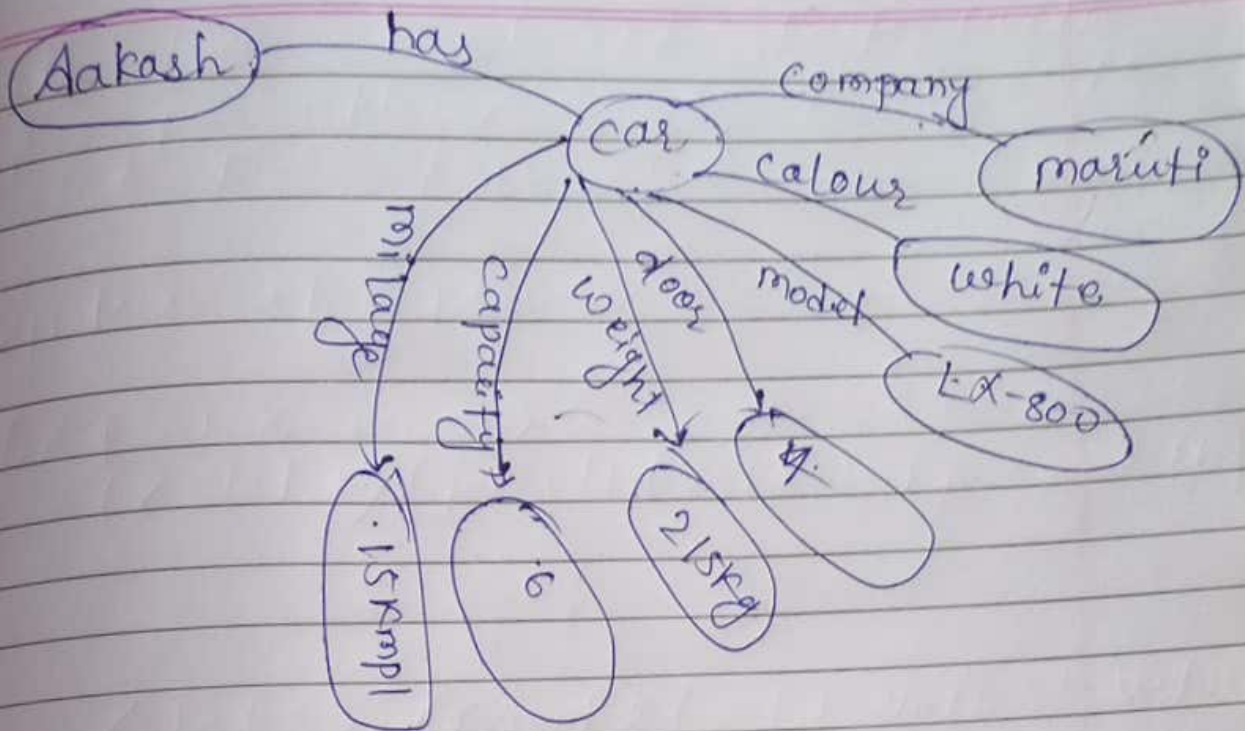 Aakash
has
car
Company
maruti
Calour
white
model
LX-800
door
4
Weight
215kg
Capacity
6
milage
15kmpl